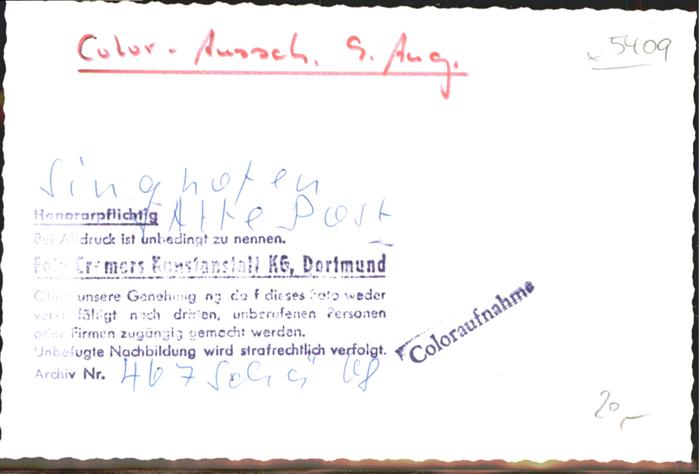 Color - Aussch. s. Aug.
5409
Singhofen
Alte Post
Honorarpflichtig
Bei Abdruck ist unbedingt zu nennen.
Foto Cremers Kunstanstalt KG, Dortmund
Ohne unsere Genehmigung darf dieses Foto weder
vervielfältigt noch dritten, unberufenen Personen
oder Firmen zugängig gemacht werden.
Unbefugte Nachbildung wird strafrechtlich verfolgt.
Archiv Nr. 467 Schö
Coloraufnahme
20,-